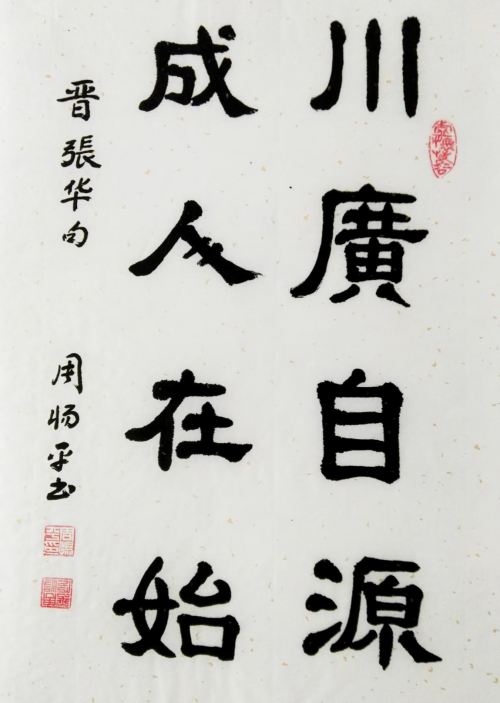 川廣自源
成人在始
晋張华句
周旸平书